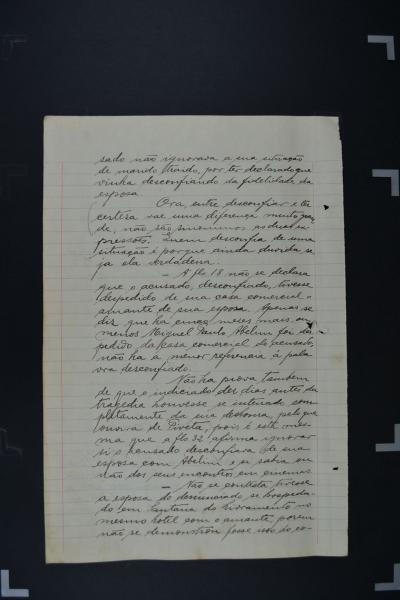 sado não ignorava a sua situação
de marido traido, por ter declarado que
vinha desconfiando da fidelidade da
esposa.
Ora, entre desconfiar e ter
certeza vae uma differença muito gran
de, não são sinonimos as duas ex
pressões. Quem desconfia de uma
situação é porque ainda duvida se
ja ela verdadeira.
— A fls 18 não se declara
que o acusado, desconfiado, tivesse
despedido de sua casa comercial o
amante de sua esposa. Apenas se
diz que ha cinco meses mais ou
menos Miguel Paulo Abelin foi des
pedido da casa comercial do acusado,
não ha a menor referencia á pala
vra desconfiado.
Não ha prova tambem
de que o indiciado dez dias antes da
tragedia houvesse se inteirado com
pletamente da sua deshonra, pelo que
ouvira de Piveta, pois é este mes-
mo que a fls 32 afirma ignorar
si o acusado desconfiava de sua
esposa com Abelin e si sabia ou
não dos seus encontros em cinemas
— Não se contesta tivesse
a esposa do denunciado se hospeda-
do em Santana do Livramento no
mesmo hotel com o amante, porem
não se demonstrou fosse isso do co-